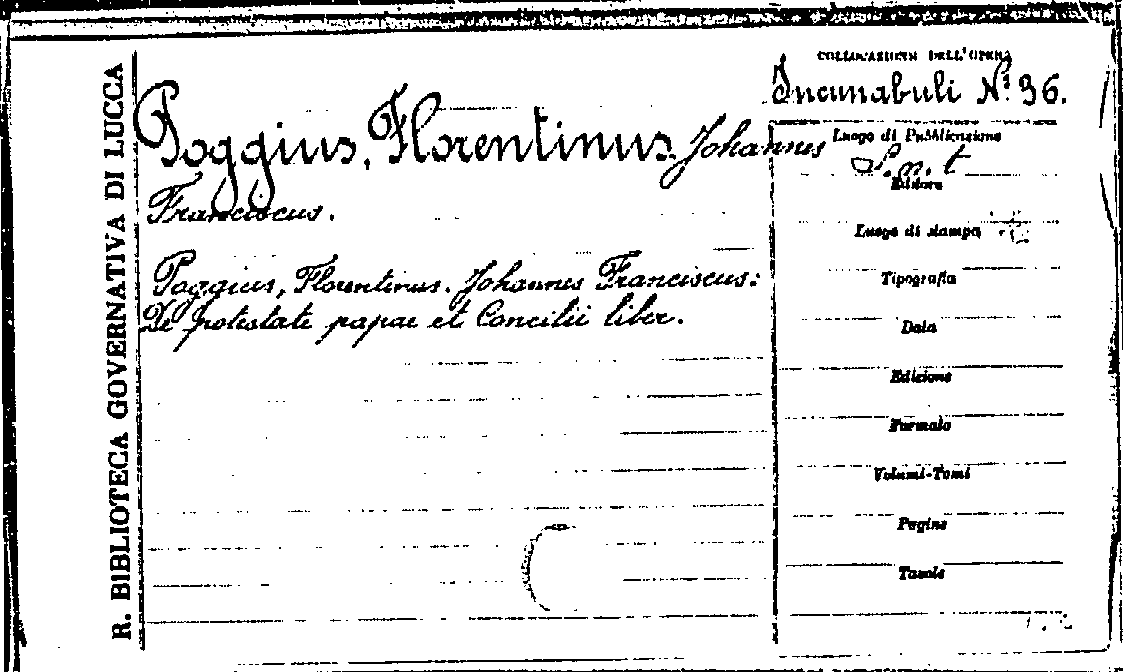 R. BIBLIOTECA GOVERNATIVA DI LUCCA
Poggius, Florentinus Johannes
Franciscus.
Poggius, Florentinus. Johannes Franciscus:
De potestate papae et Concilii liber.
COLLOCAZIONE DELL'OPERA
Incunabuli N.º 96.
Luogo di Pubblicazione
S. n. t
Editore
Luogo di stampa
Tipografia
Data
Edizione
Formato
Volumi-Tomi
Pagine
Tavole